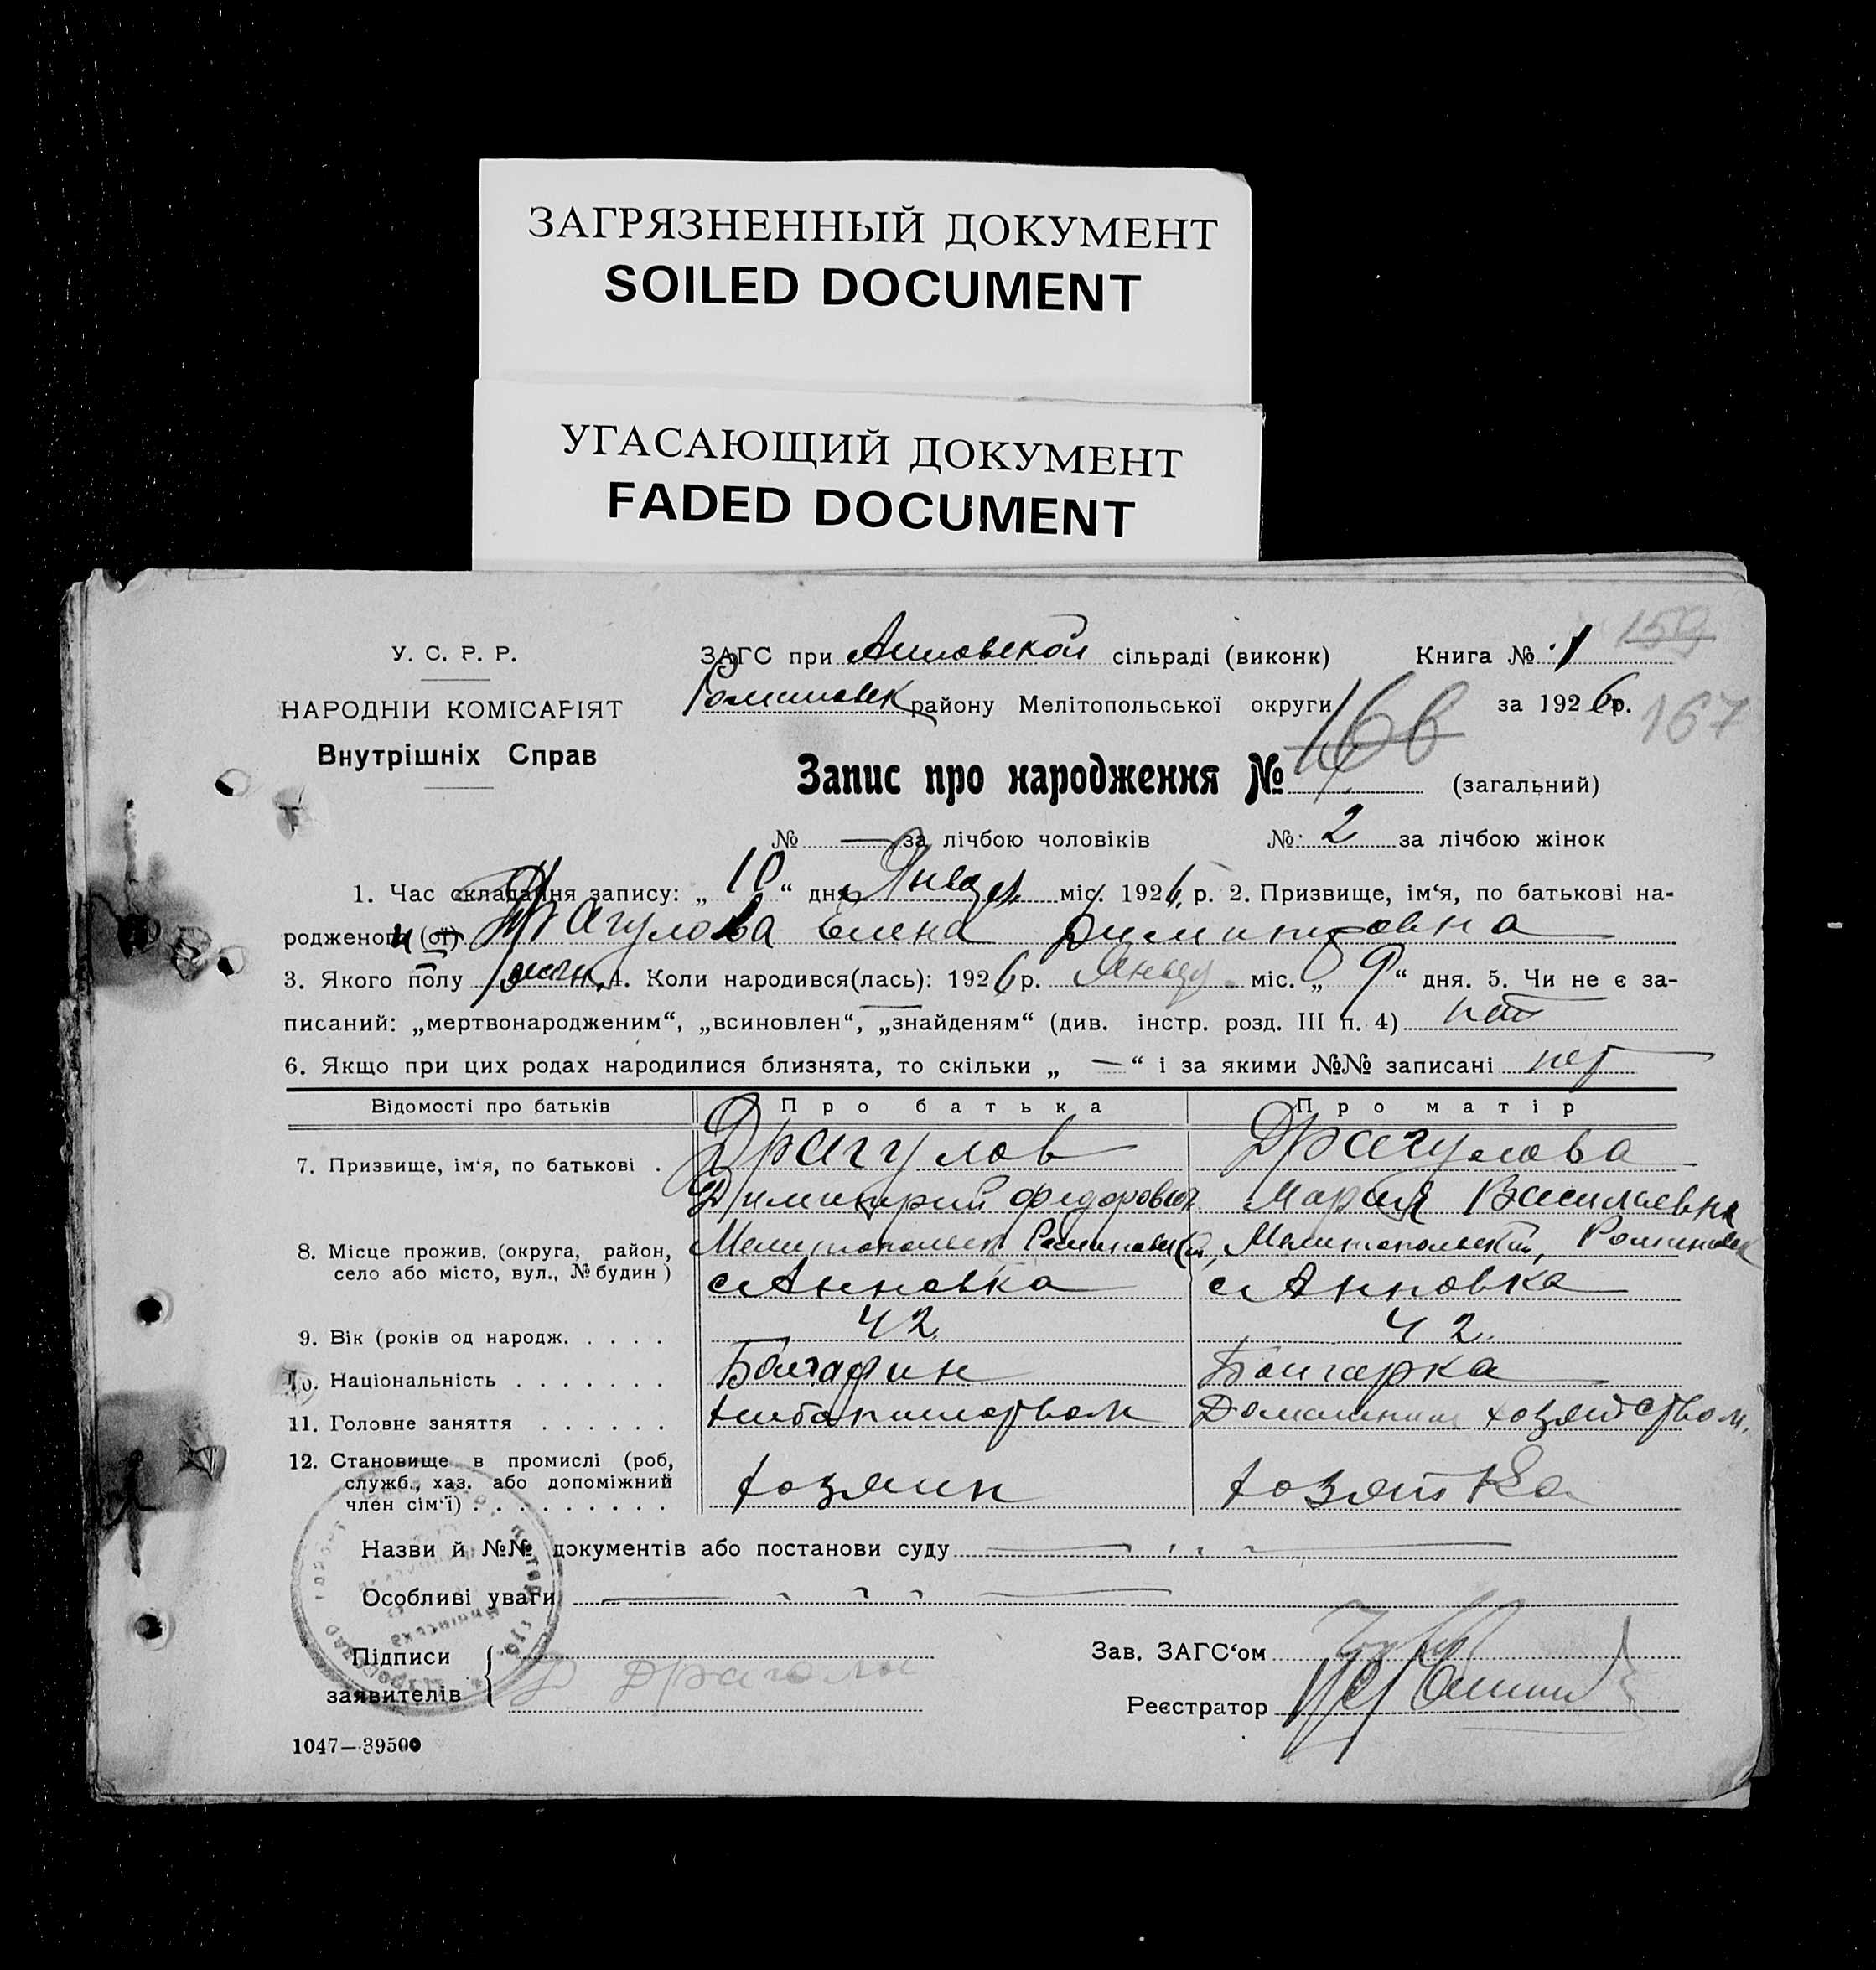 ЗАГРЯЗНЕННЫЙ ДОКУМЕНТ
SOILED DOCUMENT
УГАСАЮЩИЙ ДОКУМЕНТ
FADED DOCUMENT
159
У. С. Р. Р.
ЗАГС при Анновской сільраді (виконк) Книга № 1
НАРОДНІИ КОМІСАРІЯТ
району Мелітопольської округи за 1926 р. 167
Внутрішніх Справ
166
Запис про народження № 4. (загальний)
№ — за лічбою чоловіків № 2 за лічбою жінок
1. Час складання запису: „ 10 “ дня Январ міс. 1926 р. 2. Призвище, ім‘я, по батькові на-
родженого (ої) Драгулова Елена Димитровна
3. Якого полу жен. 4. Коли народився(лась): 1926 р. Январ. міс. „ 9 “ дня. 5. Чи не є за-
писаний: „мертвонародженим“, „всиновлен“, „знайденям“ (див. інстр. розд. III п. 4) нет
6. Якщо при цих родах народилися близнята, то скільки „ — “ і за якими №№ записані нет
Відомості про батьків Про батька Про матір
7. Призвище, ім‘я, по батькові . Драгулов Драгулова
Димитрий Федорович Мария Васильевна
8. Місце прожив. (округа, район, Мелитопольск Мелитопольский,
село або місто, вул., № будин) с Анновка с Анновка
9. Вік (років од народж. . . . . 42 42.
10. Національність . . . . . . . Болгарин Болгарка
11. Головне заняття . . . . . . Хлебопашеством Домашним хозяйством.
12. Становище в промислі (роб,
служб., хаз. або допоміжний
член сім‘ї) . . . . . . . . . хозяин хозяйка
Назви й №№ документів або постанови суду
Особливі уваги
Підписи
заявителів
Зав. ЗАГС‘ом
Реєстратор
1047—39500